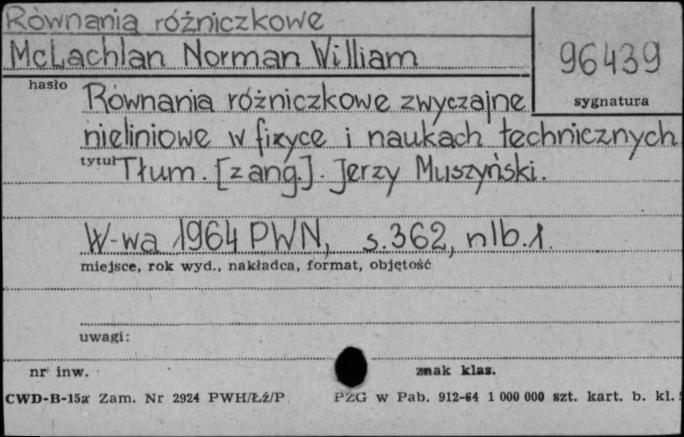 Równania różniczkowe
McLachlan Norman William
96439
hasło
sygnatura
Równania różniczkowe zwyczajne
nieliniowe w fizyce i naukach technicznych
tytuł Tłum. [z ang.]. Jerzy Muszyński.
W-wa 1964 PWN, s. 362, nlb. 1.
miejsce, rok wyd., nakładca, format, objętość
uwagi:
nr inw. znak klas.
CWD-B-15a Zam. Nr 2924 PWH/Łź/P PZG w Pab. 912-64 1 000 000 szt. kart. b. kl.